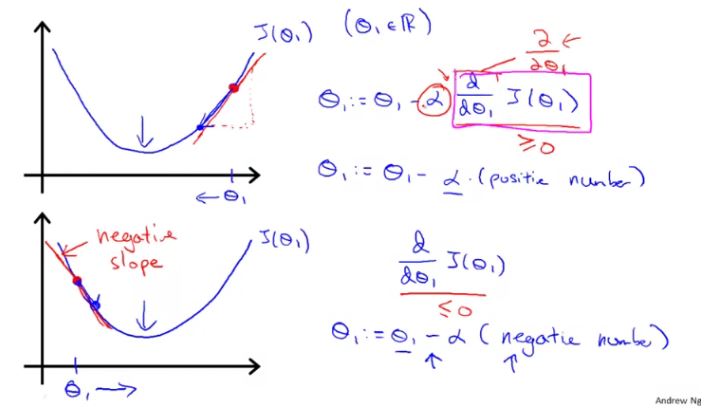 J(θ₁) (θ₁ ∈ ℝ)
∂ ←
∂θ₁
θ₁ := θ₁ - α d/dθ₁ J(θ₁)
≥ 0
θ₁ := θ₁ - α · (positie number)
← θ₁
negatie
slope
J(θ₁)
d/dθ₁ J(θ₁)
≤ 0
θ₁ := θ₁ - α (negatie number)
θ₁ →
Andrew Ng